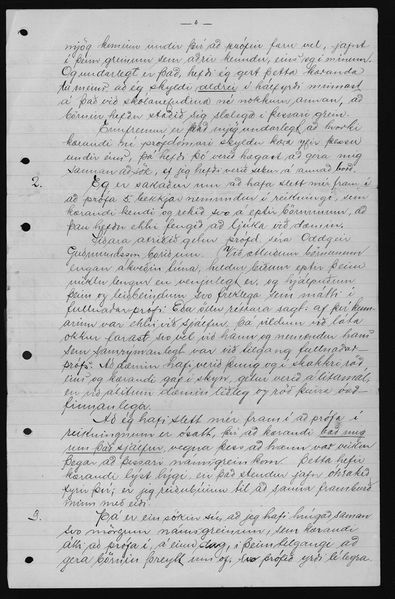 - 4 -
mjög komin undir því að prófin færu vel, jafnt
í þeim greinum sem aðrir kenndu, eins og í mínum.
Og undarlegt er það, hefði eg gert þetta kæranda
til meins að eg skyldi aldrei í hálfyrði minnast
á það við skólanefndina né nokkurn annan, að
börnin hefðu staðið sig slælega í þessari grein.
Ennfremur er það mjög undarlegt, að hvorki
kærandi né prófdómari skyldu kæra yfir þessu
undir eins, þá hefði þó verið hægast að gera mig
sannan að sök, ef jeg hefði verið sekur á annað borð.
2. Eg er sakaður um að hafa slett mér fram í
að prófa 5 bekkjar nemendur í reikningi, sem
kærandi kendi og rekið svo á eptir börnunum, að
þau hefðu ekki fengið að ljúka við dæmin.
Þessara atriða getur prófd. séra Oddgeir
Guðmundsson þannig. "Við ætluðum börnunum
engan ákveðin tíma, heldur biðum eptir þeim
miklu lengur en venjulegt er, og hjálpuðum
þeim og leiðbeindum svo freklega sem mátti í
fullnaðarprófi. Eða öllu rjettara sagt: af því kenn-
arinn var ekki við sjálfur, þá vildum við láta
okkur farast svo vel við hann og nemendur hans
sem samrýmanlegt var við tilgang fullnaðar-
prófs. Að dæmin hafi verið þung og í skakkri röð
eins og kærandi gaf í skyn, getur verið álitamál,
en við álitum dæmin létt og röð þeirra vað-
finnanlega.
Að eg hafi slett mér fram í að prófa í
reikningnum er ósatt, því að kærandi bað mig
um það sjálfur, vegna þess að hann var veikur
þegar að þessari námsgrein kom. Þetta hefir
kærandi lýst lygi, en það stendur jafn óhrakið
fyrir því, er jeg reiðubúinn til að sanna framburð
minn með eið.
3. Þá er ein sökin sú, að jeg hafi hrúgað saman
svo mörgum námsgreinum, sem kærandi
átti að prófa í, á einn dag, í þeim tilgangi að
gera börnin þreytt um of, svo prófið yrði lélegra.